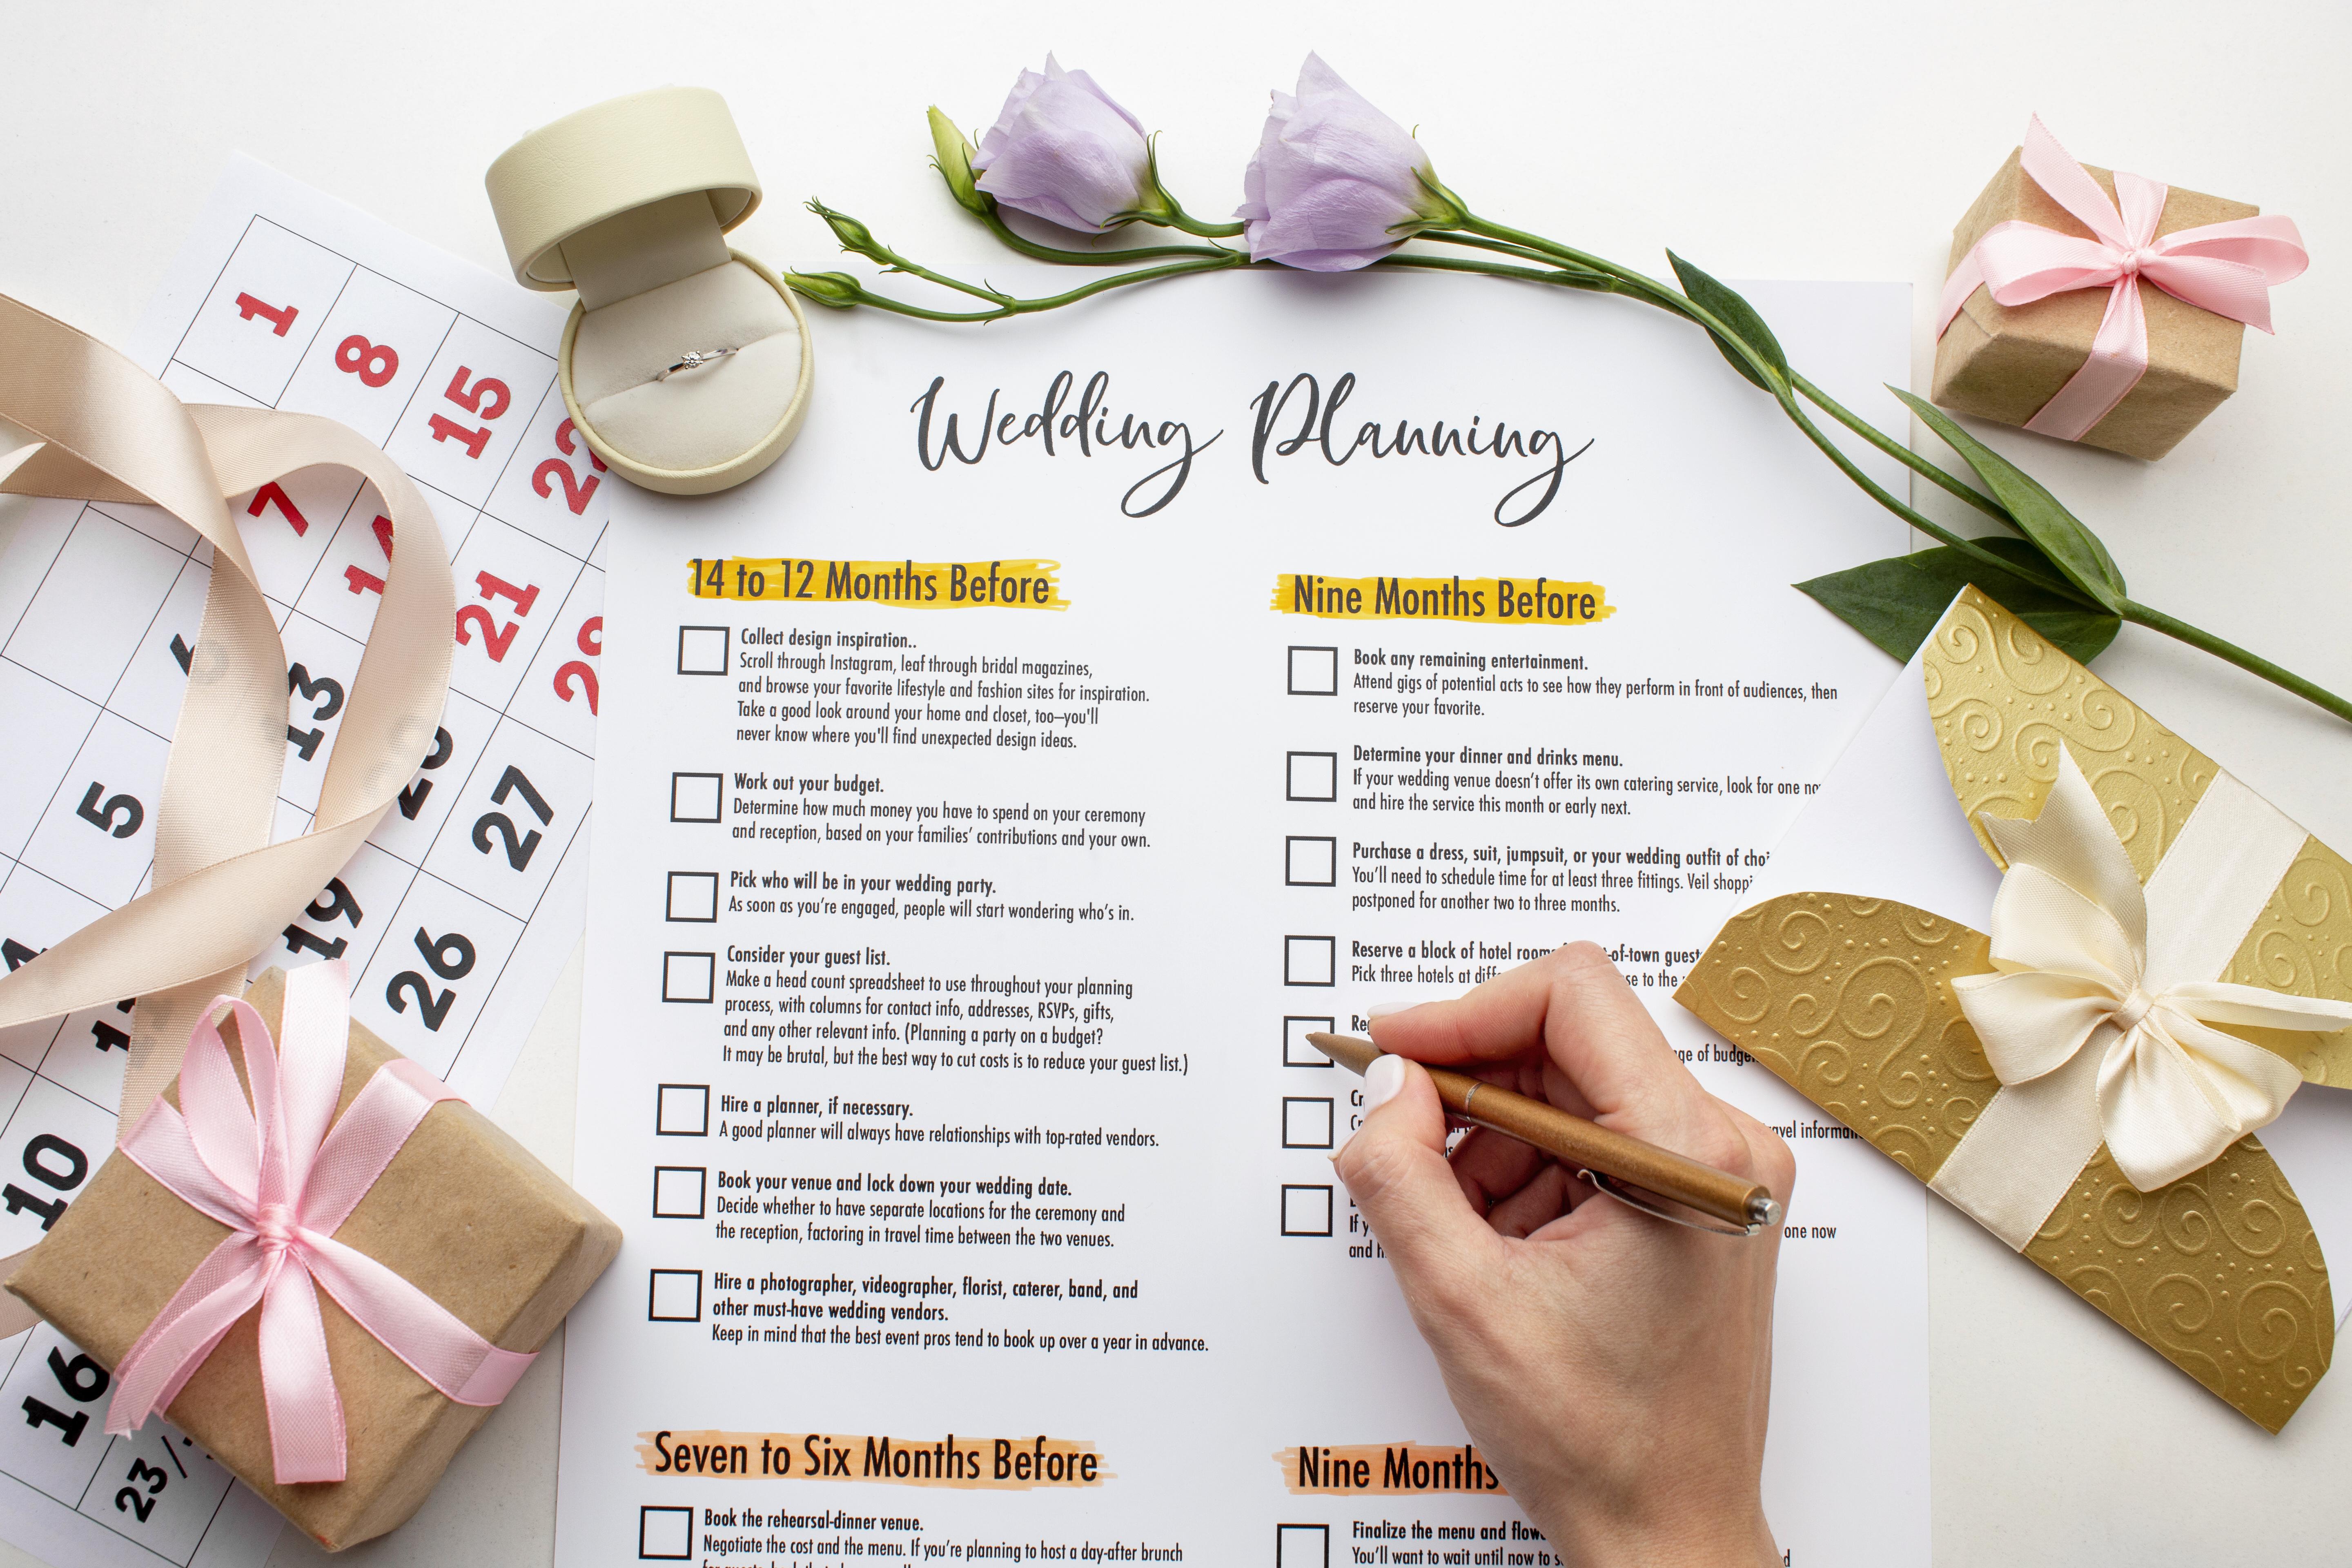 Wedding Planning
14 to 12 Months Before
Collect design inspiration..
Scroll through Instagram, leaf through bridal magazines,
and browse your favorite lifestyle and fashion sites for inspiration.
Take a good look around your home and closet, too—you'll
never know where you'll find unexpected design ideas.
Work out your budget.
Determine how much money you have to spend on your ceremony
and reception, based on your families’ contributions and your own.
Pick who will be in your wedding party.
As soon as you’re engaged, people will start wondering who’s in.
Consider your guest list.
Make a head count spreadsheet to use throughout your planning
process, with columns for contact info, addresses, RSVPs, gifts,
and any other relevant info. (Planning a party on a budget?
It may be brutal, but the best way to cut costs is to reduce your guest list.)
Hire a planner, if necessary.
A good planner will always have relationships with top-rated vendors.
Book your venue and lock down your wedding date.
Decide whether to have separate locations for the ceremony and
the reception, factoring in travel time between the two venues.
Hire a photographer, videographer, florist, caterer, band, and
other must-have wedding vendors.
Keep in mind that the best event pros tend to book up over a year in advance.
Seven to Six Months Before
Book the rehearsal-dinner venue.
Negotiate the cost and the menu. If you’re planning to host a day-after brunch
Nine Months Before
Book any remaining entertainment.
Attend gigs of potential acts to see how they perform in front of audiences, then
reserve your favorite.
Determine your dinner and drinks menu.
If your wedding venue doesn’t offer its own catering service, look for one
and hire the service this month or early next.
Purchase a dress, suit, jumpsuit, or your wedding outfit of
You’ll need to schedule time for at least three fittings. Veil
postponed for another two to three months.
Reserve a block of hotel -of-town
Pick three hotels at to the
of
one now
and
Nine Months
Finalize the menu and
You’ll want to wait until now to
1
8
15
7
21
6
13
27
5
19
26
10
16
23/